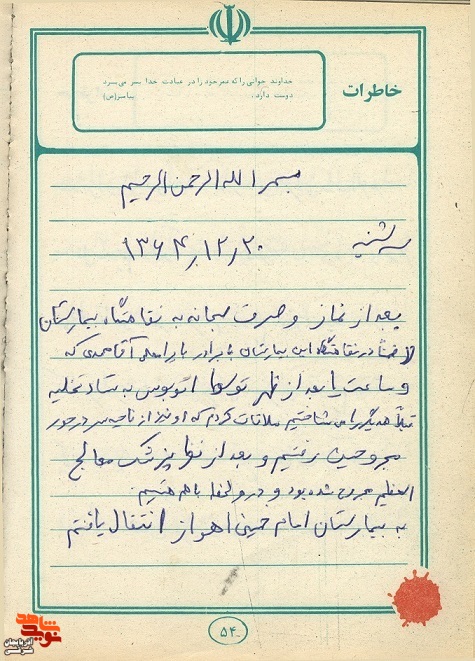 خاطرات
خداوند جوانی را که عمر خود را در عبادت خدا بسر می‌برد
دوست دارد. پیامبر(ص)
بسم الله الرحمن الرحیم
سه شنبه
۱۳۶۴/۱۲/۲۰
بعد از نماز و صرف صبحانه به نقاهتگاه بیمارستان
در نقاهتگاه این بیمارستان با برادر آقا صمدی که
و ساعت بعد از ظهر توسط اتوبوس به ستاد تخلیه
قبلاً همدیگر را می شناختیم ملاقات کردم که او نیز از ناحیه سر در هور
مجروحین رفتیم و بعد از نظر پزشک معالج
العظیم مجروح شده بود و در با هم هستیم.
به بیمارستان امام خمینی اهواز انتقال یافتم
۵۴
نوید شاهد
آذربایجان شرقی